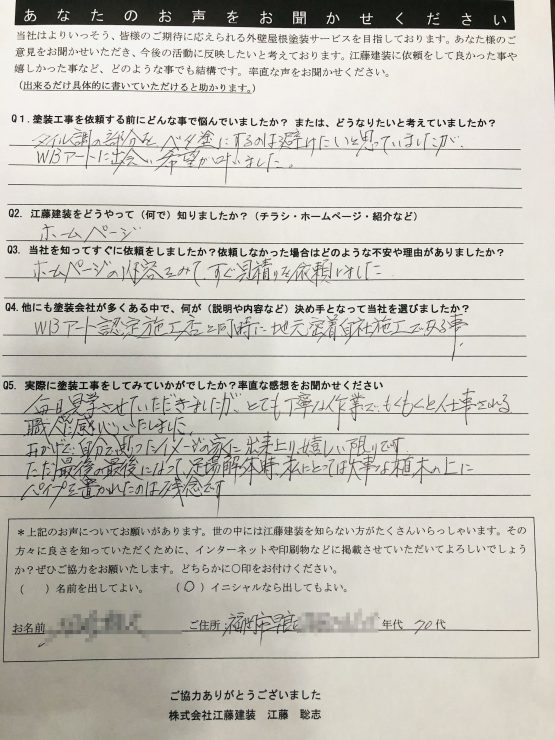 あなたのお声をお聞かせください
当社はよりいっそう、皆様のご期待に応えられる外壁屋根塗装サービスを目指しております。あなた様のご
意見をお聞かせいただき、今後の活動に反映したいと考えております。江藤建装に依頼をして良かった事や
嬉しかった事など、どのような事でも結構です。率直な声をお聞かせください。
(出来るだけ具体的に書いていただけると助かります。)
Q1. 塗装工事を依頼する前にどんな事で悩んでいましたか? または、どうなりたいと考えていましたか?
タイル調の部分をベタ塗にするのは避けたいと思っていましたが、
WBアートに出会い希望が叶いました。
Q2. 江藤建装をどうやって(何で)知りましたか?(チラシ・ホームページ・紹介など)
ホームページ
Q3. 当社を知ってすぐに依頼をしましたか?依頼しなかった場合はどのような不安や理由がありましたか?
ホームページの内容をみて、すぐ見積りを依頼しました
Q4. 他にも塗装会社が多くある中で、何が(説明や内容など)決め手となって当社を選びましたか?
WBアート認定施工店と同時に地元密着自社施工である事
Q5. 実際に塗装工事をしてみていかがでしたか?率直な感想をお聞かせください
毎日見学させていただきましたが、とても丁寧な作業でもくもくと仕事される
職人に感心いたしました。
おかげで、自分で思ったイメージの家に出来上り嬉しい限りです
ただ最後の最後になって、足場解体時、私にとっては大事な植木の上に
パイプを置かれたのは残念です
*上記のお声についてお願いがあります。世の中には江藤建装を知らない方がたくさんいらっしゃいます。その
方々に良さを知っていただくために、インターネットや印刷物などに掲載させていただいてよろしいでしょう
か?ぜひご協力をお願いします。どちらかに○印をお付けください。
( )名前を出してよい。 (○)イニシャルなら出してもよい。
お名前 ご住所 福岡市早良 年代 70代
ご協力ありがとうございました
株式会社江藤建装 江藤 聡志